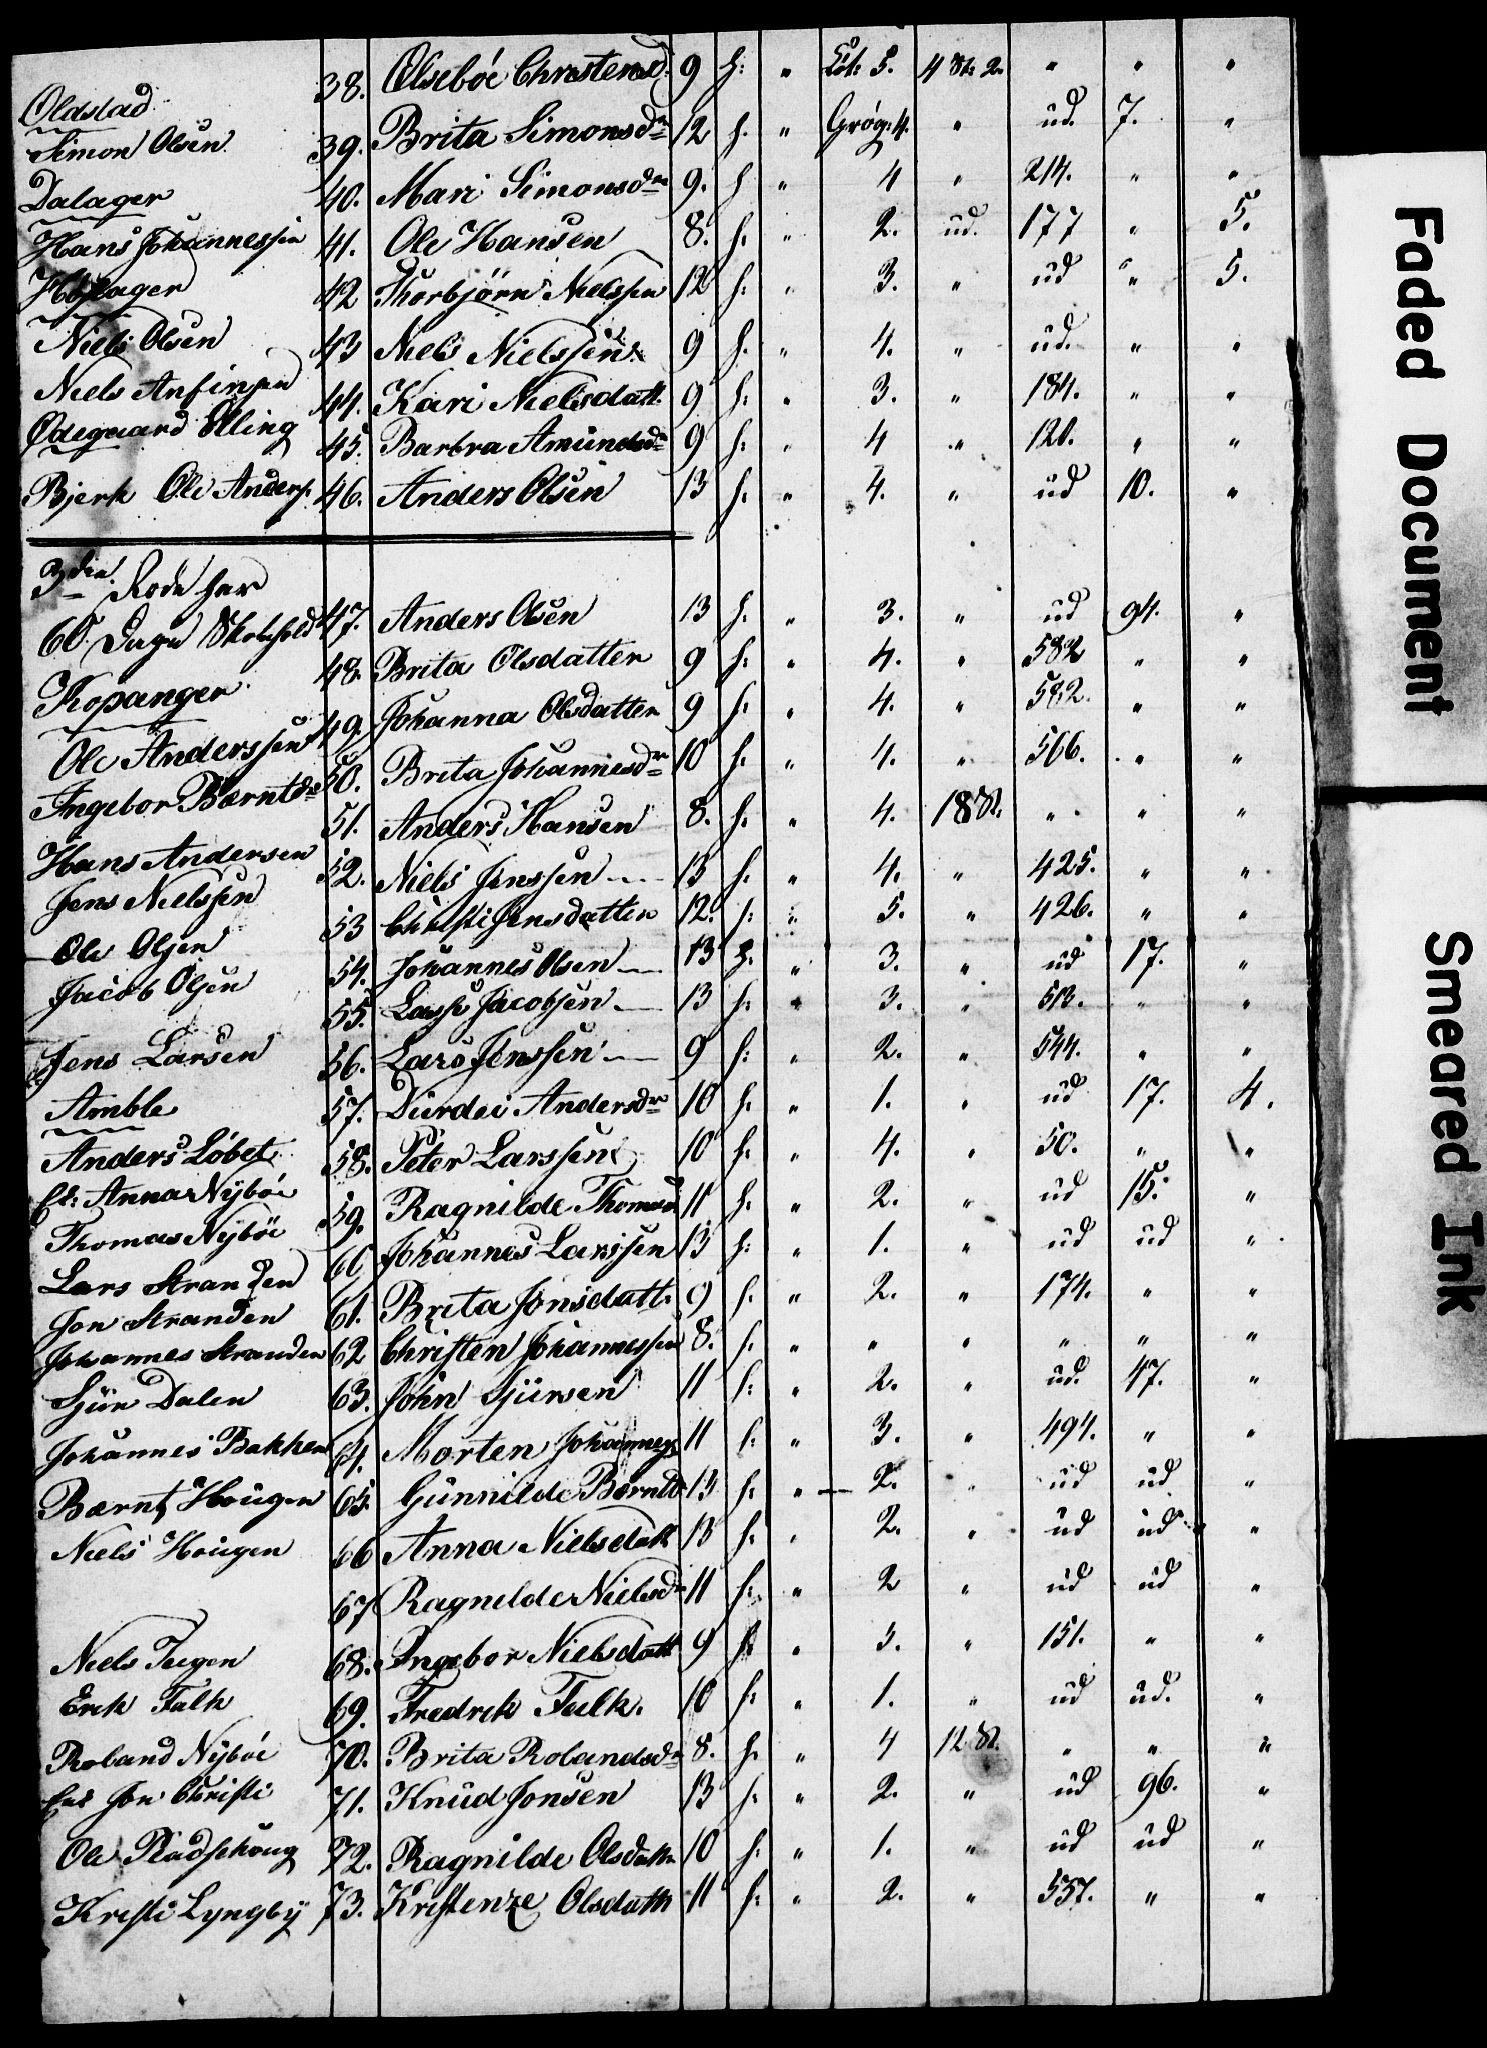 38. Olseböe Christensd. 9 h: " Löt: 5. 4 St: 2. " " "
Oldstad
Simon Olsen 39. Brita Simonsdr 12 h. " Grög: 4. " ud. 7. "
Dalager 40. Mari Simonsdr 9. h " 4 " 214. " "
Hans Johannessen 41. Ole Hansen 8. h. " 2. ud. 177 " 5.
42 Thorbjörn Nielssen 12 h. " 3. " ud " 5.
Niels Olsen 43 Niels Nielssen 9 h. " 4. " ud. " "
Niels Anfinsen 44. Kari Nielsdatt. 9 h. " 3. " 184. " "
Ødegaard Elling 45. Barbra Amundsdr 9 h. " 4 " 120. " "
Bjerk Ole Anders. 46. Anders Olsen 13 h. " 4. " ud 10. "
3die Rode har
60 Dage Skolehold 47. Anders Olsen 13 h. " 3. " ud 94. "
Kopanger 48. Brita Olsdatter 9 h. " 4. " 582 " "
Ole Anderssen 49. Johanna Olsdatter 9 h. " 4. " 582. " "
Ingebor Bærntdr 50. Brita Johannesdr 10 h. " 4. " 566. " "
Hans Andersen 51. Anders Hansen 8. h. " 4. 18 St. " " "
Jens Nielssen 52. Niels Jenssen 13 h. " 4. " 425. " "
53 Christi Jensdatter 12. h: " 5. " 426. " "
Ole Olsen 54. Johannes Olsen 13 h. " 3. " ud 17. "
Jacob Olsen 55. Lasse Jacobsen 13 h: " 3. " 513. " "
Jens Larsen 56. Lars Jenssen 9 h: " 2. " 544. " "
Amble 57. Dierdei Andersdr 10 h. " 1. " ud 17. 4.
Anders Löbet 58. Peter Larssen 10 h. " 4. " 50. " "
Anna Nyböe 59. Ragnilde Thomasd 11 h. " 2. " ud 15. "
Thomas Nyböe
Lars Stranden 60 Johannes Larssen 13 h: " 1. " ud ud "
Jon Stranden 61. Brita Jonsdatt. 9 h. " 2. " 174. " "
Johannes Stranden 62 Christen Johannessen 8. h. " " " " " "
Sjür Dalen 63. John Sjürsen 11 h: " 2. " ud. 47. "
Johannes Bakken 64. Morten Johannes 11 h: " 3. " 494. " "
Bærnt Hougen 65. Gunnilde Bærntd 13 h: " 2. " ud ud "
Niels Hougen 66 Anna Nielsdatt 13 h: " 2. " ud ud "
67 Ragnilde Nielsdr 11 h: " 2 " ud ud "
Niels Teigen 68. Ingebor Nielsdatt 9 h " 3. " 151. " "
Erik Falk 69. Fredrik Falk. 10 h: " 1. " ud ud. "
Roland Nyböe 70. Brita Rolandsdr 8. h. " 4 12 St. " " "
Jon Christi 71. Knud Jonsen 13 h. " 2. " ud 96. "
Ole 72. Ragnilde Olsdatt 10 h: " 1. " ud ud "
Kristi Lyngby 73. Kristenze Olsdatt 11 h: " 2. " 557. " "
Faded Document
Smeared Ink